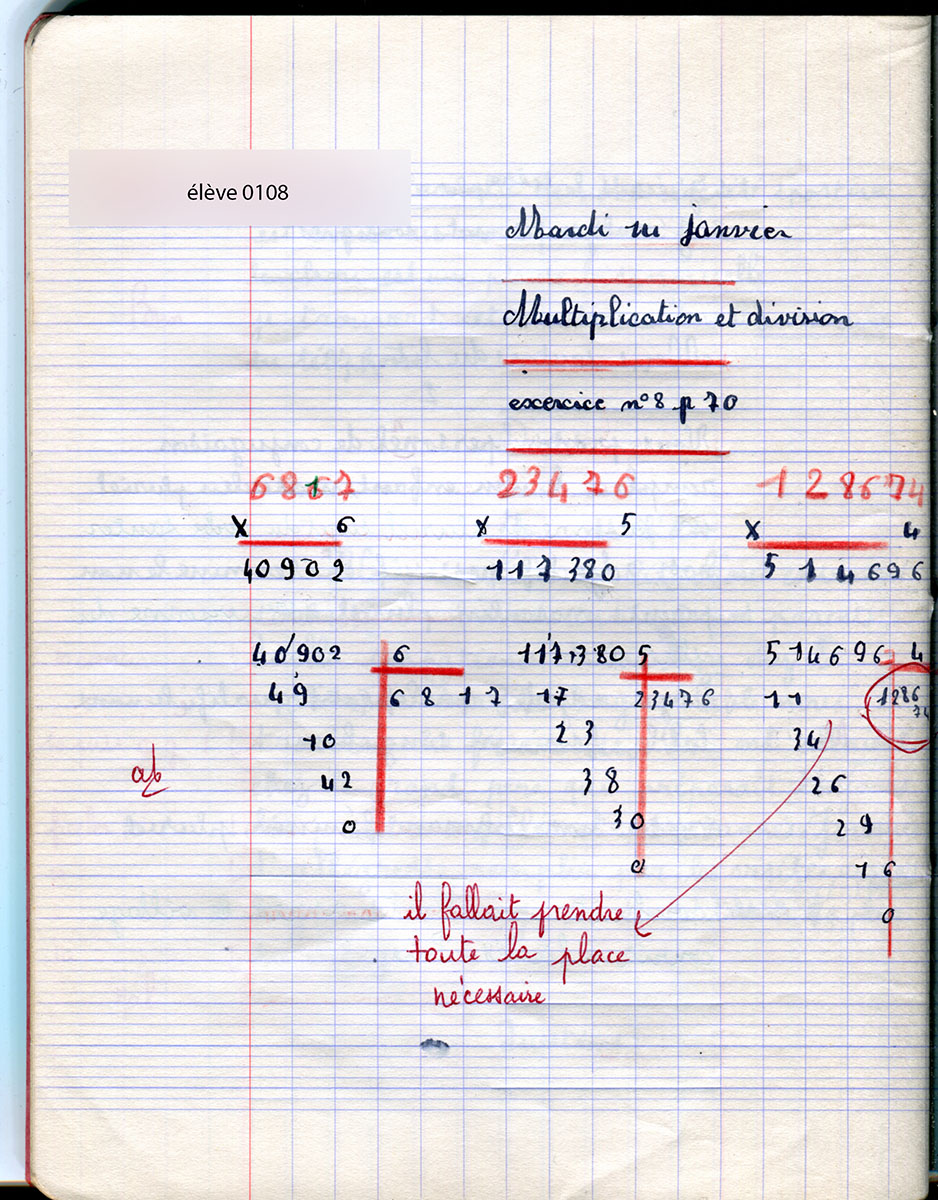 élève 0108
Mardi 111 janvier
Multiplication et division
exercice n°8 p 70
6817 23476 128674
x 6 x 5 x 4
40902 117380 514696
40902 6 117380 5 514696 4
49 6817 17 23476 11 1286
74
10 23 34
ab 42 38 26
0 30 29
0 16
0
il fallait prendre
toute la place
nécessaire